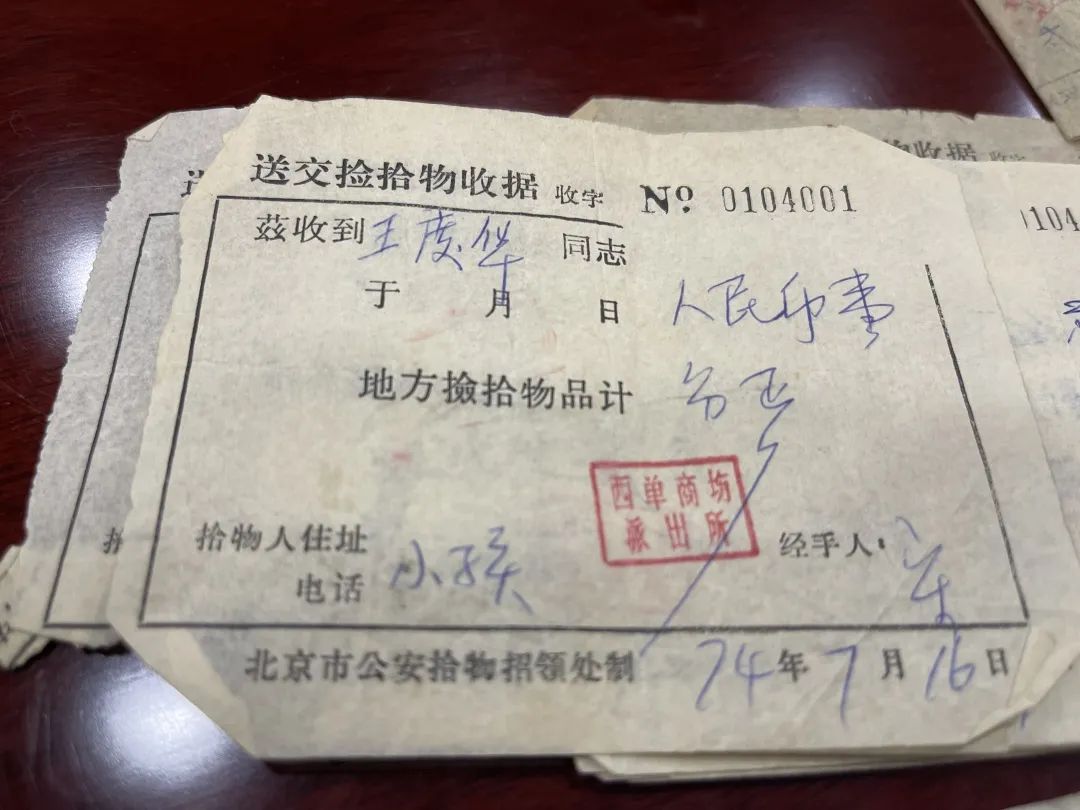 送交捡拾物收据 收字 № 0104001
茲收到 王度华 同志
于 月 日 人民币壹
地方撿拾物品计 分正
西单商场
派出所
拾物人住址
经手人：
电话 小孩
北京市公安拾物招领处制 74年7月16日
物收据
104